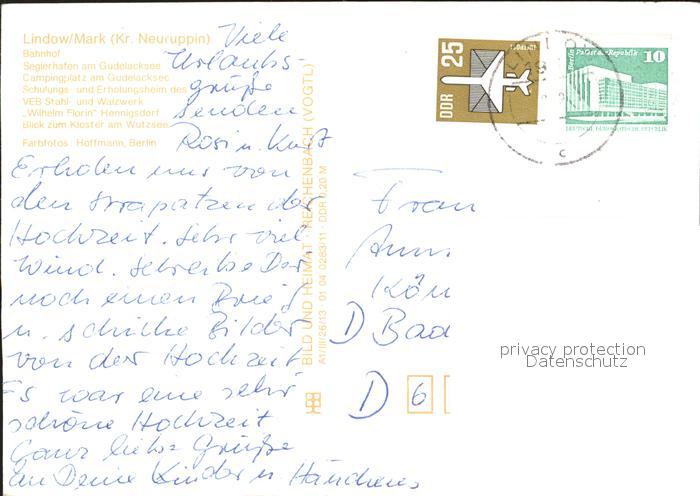 Lindow/Mark (Kr. Neuruppin)
Bahnhof
Seglerhafen am Gudelacksee
Campingplatz am Gudelacksee
Schulungs- und Erholungsheim des
VEB Stahl- und Walzwerk
"Wilhelm Florin" Hennigsdorf
Blick zum Kloster am Wutzsee
Farbfotos: Hoffmann, Berlin
Viele
Urlaubs-
grüße
senden
Rosi u. Kurt
Erholen uns von
den Strapatzen der
Hochzeit. Sehr viel
Wind. Schreibe Dir
noch einen Brief
u. schicke Bilder
von der Hochzeit
Es war eine sehr
schöne Hochzeit
Ganz liebe Grüße
an Deine Kinder u
BILD UND HEIMAT · REICHENBACH (VOGTL)
A1/III/26/13 01 04 0283/11 · DDR 0,20 M
DDR 25
Berlin Palast der Republik 10
DEUTSCHE DEMOKRATISCHE REPUBLIK
c
Frau
Köln
D Bad
D 6
privacy protection
Datenschutz